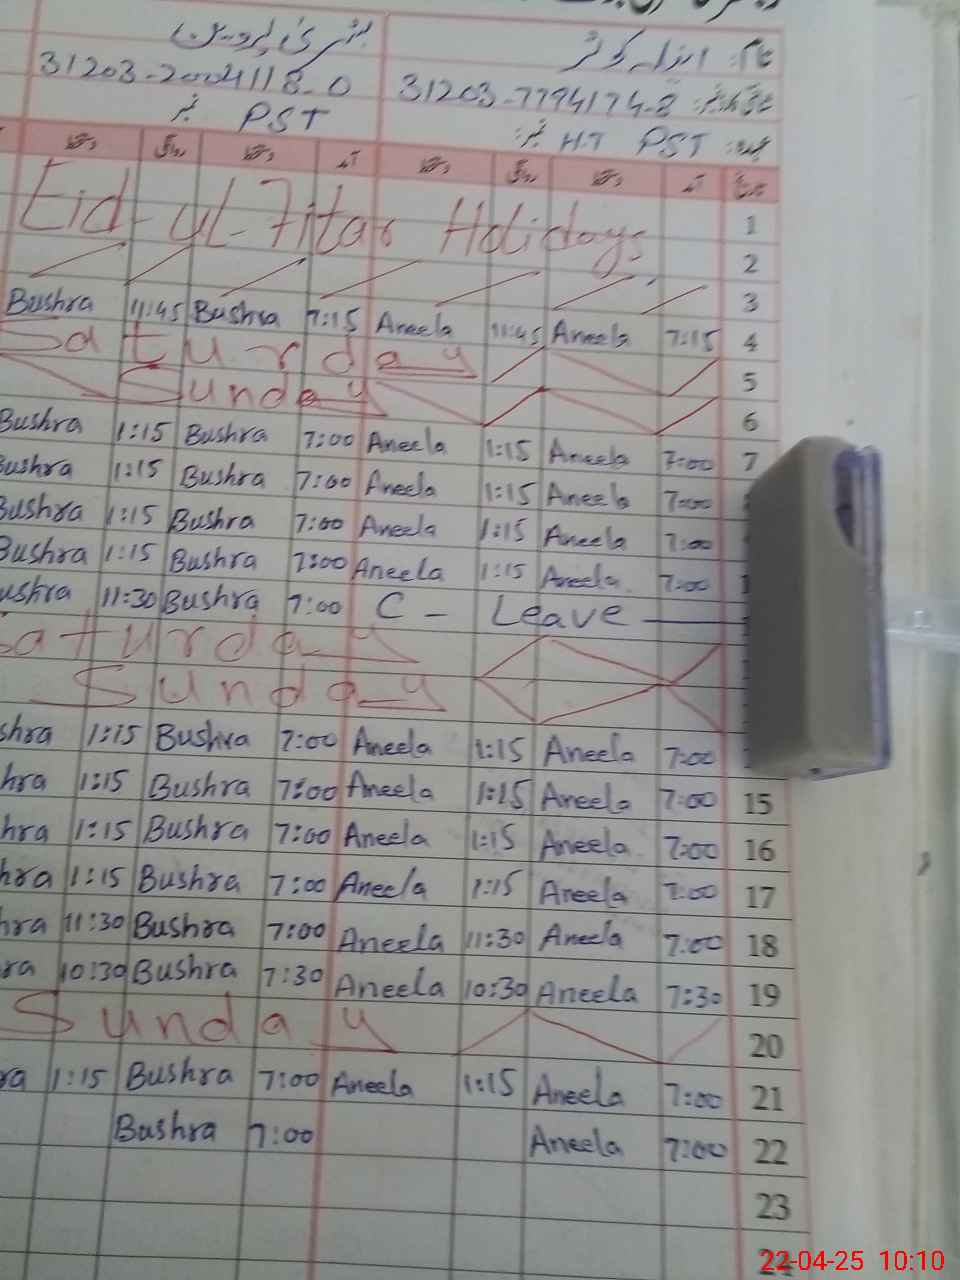 نام: انیلہ کوثر بشریٰ پروین
31203-7794174-2 31203-2004118-0
عہدہ: PST H.T نمبر: PST نمبر
تاریخ آمد دستخط روانگی دستخط آمد دستخط روانگی دستخط
1
Eid-ul-Fitar Holidays
2
3
Bushra 11:45 Bushra 7:15 Aneela 11:45 Aneela 7:15 4
Saturday 5
Sunday 6
Bushra 1:15 Bushra 7:00 Aneela 1:15 Aneela 7:00 7
Bushra 1:15 Bushra 7:00 Aneela 1:15 Aneela 7:00
Bushra 1:15 Bushra 7:00 Aneela 1:15 Aneela 7:00
Bushra 1:15 Bushra 7:00 Aneela 1:15 Aneela 7:00
ushra 11:30 Bushra 7:00 C - Leave
aturday
Sunday
shra 1:15 Bushra 7:00 Aneela 1:15 Aneela 7:00
hra 1:15 Bushra 7:00 Aneela 1:15 Aneela 7:00 15
hra 1:15 Bushra 7:00 Aneela 1:15 Aneela 7:00 16
hra 1:15 Bushra 7:00 Aneela 1:15 Aneela 7:00 17
hra 11:30 Bushra 7:00 Aneela 11:30 Aneela 7:00 18
ra 10:30 Bushra 7:30 Aneela 10:30 Aneela 7:30 19
Sunday 20
ra 1:15 Bushra 7:00 Aneela 1:15 Aneela 7:00 21
Bushra 7:00 Aneela 7:00 22
23
24
22-04-25 10:10